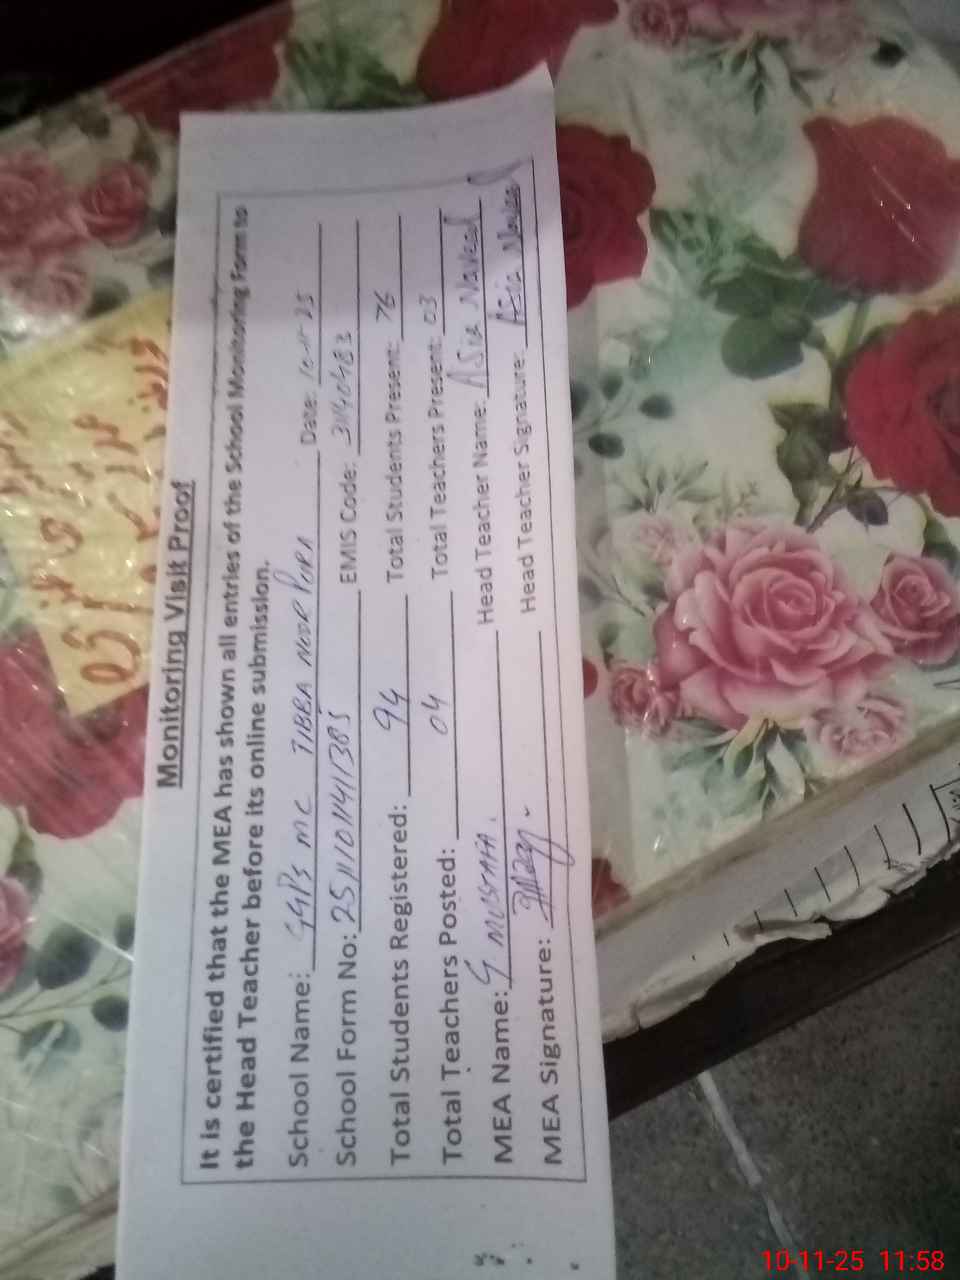 Monitoring Visit Proof
It is certified that the MEA has shown all entries of the School Monitoring Form to
the Head Teacher before its online submission.
School Name: GGPS MC TIBBA NOOR PURA Date: 10-11-25
School Form No: 25111101141385 EMIS Code:
Total Students Registered: 94 Total Students Present: 76
Total Teachers Posted: 04 Total Teachers Present: 03
MEA Name: G MUSTAFA. Head Teacher Name: Asia Naveed
MEA Signature: Head Teacher Signature: Asia Naveed
10-11-25 11:58